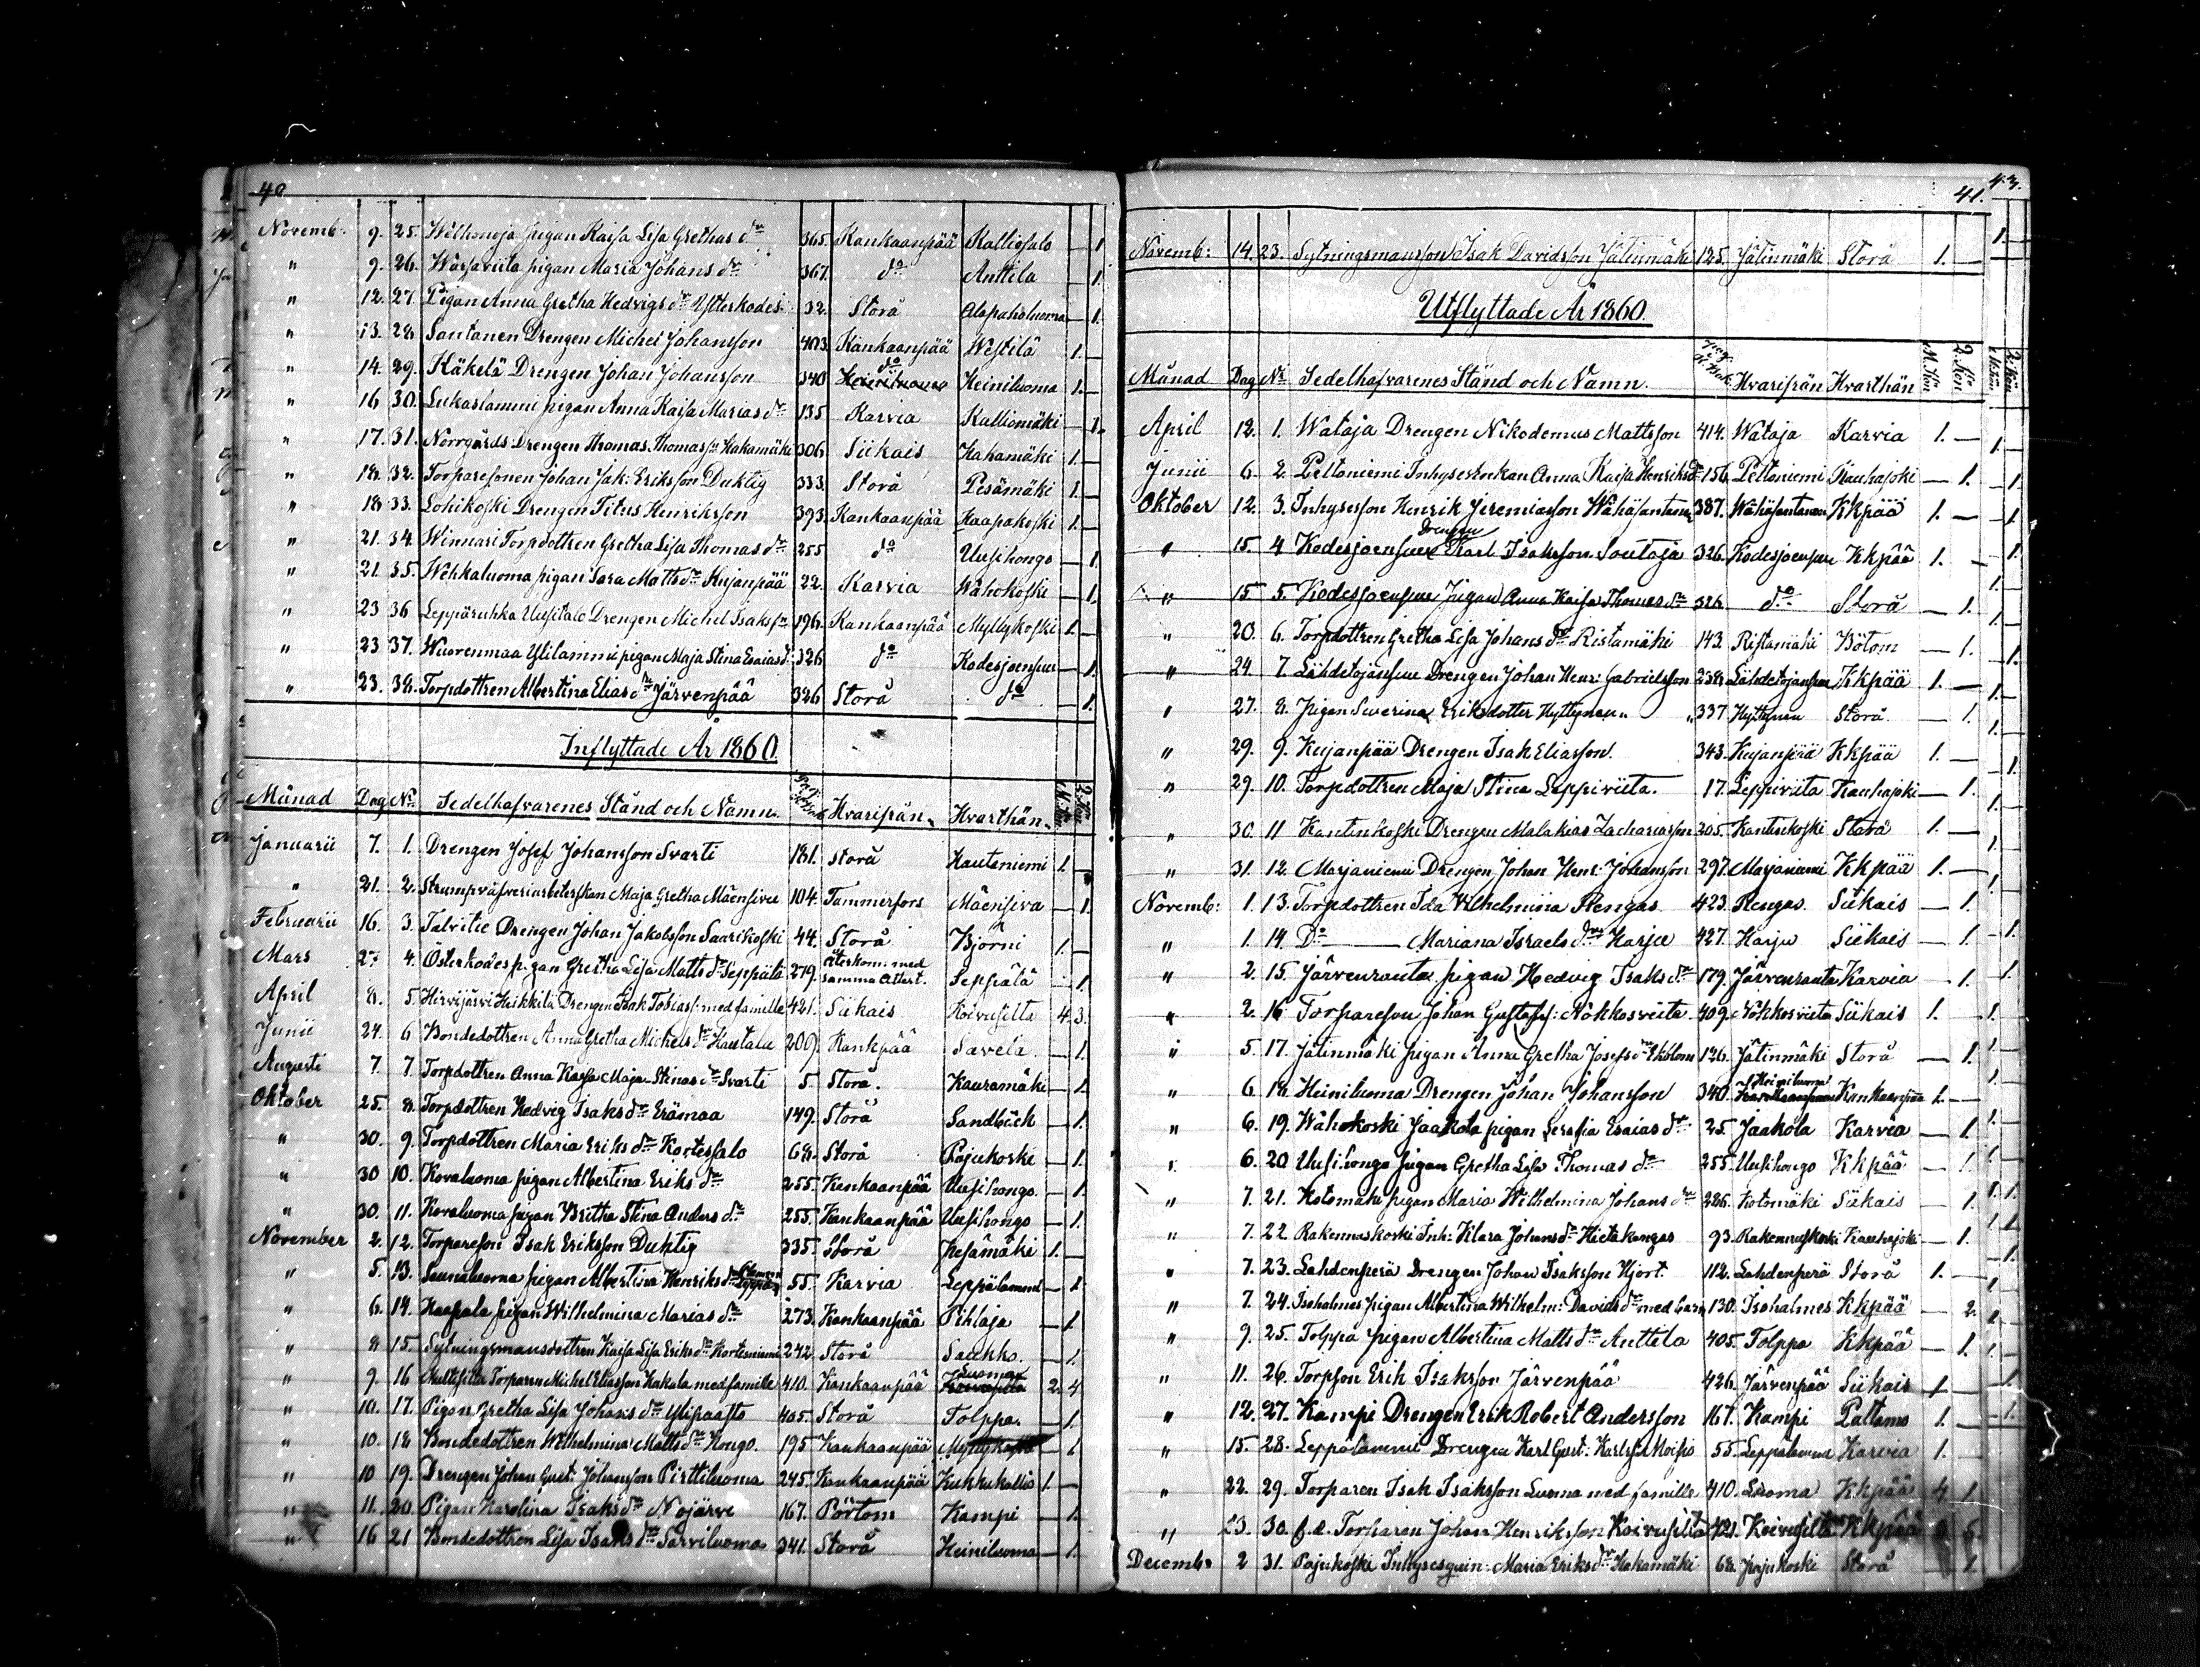 40
Novemb. 9. 25. Wilhonoja pigan Kaisa Lisa Grethas dr 365. Kankaanpää Kalliosalo — 1.
" 9. 26. pigan Maria Johans dr 367. do Anttila — 1.
" 12. 27. Pigan Anna Gretha Hedvigs dr Ytterkodes 32. Storå Alapaholuoma — 1.
" 13. 28. Santanen Drengen Michel Johansson 403. Kankaanpää Westilä 1. —
" 14. 29. Häkelä Drengen Johan Johansson 340 do Heiniluoma 1. —
" 16 30. Lukaslammi pigan Anna Kaisa Marias dr 135 Karvia Kalliomäki — 1.
" 17. 31. Norrgårds Drengen Thomas Thomass: Hakamäki 306. Siikais Hakamäki 1. —
" 18. 32. Torparesonen Johan Jak: Eriksson Duktig 333. Storå Pesämäki 1. —
" 18 33. Lohikoski Drengen Titus Henriksson 393. Kankaanpää Haapakoski 1. —
" 21. 34. Winnari Torpdottren Gretha Lisa Thomas dr 255 do Uusihongo — 1.
" 21. 35. Wehkaluoma pigan Sara Matts dr Kujanpää 22. Karvia Wähokoski — 1.
" 23 36 Leppäruhka Uusitalo Drengen Michel Isakss: 196. Kankaanpää Myllykoski 1. —
" 23 37. Wuorenmaa Ylilammi pigan Maja Stina Esaias dr 326 do Kodesjoensuu — 1.
" 23. 38. Torpdottren Albertina Elias dr Järvenpää 326 Storå do — 1.
Inflyttade År 1860.
Månad Dag No Sedelhafvarenes Stånd och Namn. Hvarifrån. Hvarthän.
Januarii 7. 1. Drengen Josef Johansson Svarti 181. Storå Kauteniemi 1. —
" 21. 2. Maja Gretha Mäensivu 104. Tammerfors Mäensivu — 1.
Februarii 16. 3. Talvitie Drengen Johan Jakobsson Saarikoski 44. Storå Björni 1. —
Mars 27 4. Österkodes pigan Gretha Lisa Matts dr Seppälä 279. återkom: med samma attest. Seppälä — 1.
April 8. 5. Hirvijärvi Heikkilä Drengen Isak Tobiass: med famille 421. Siikais Koivusilta 4. 3.
Junii 24. 6 Bondedottren Anna Gretha Michels dr Hautala 209. Kankpää Savela — 1.
Augusti 7. 7. Torpdottren Anna Kaisa Maja Stinas dr Svarti 5. Storå. Kauramäki — 1.
Oktober 25. 8. Torpdottren Hedvig Isaks dr Erämaa 149. Storå Sandbäck — 1.
" 30. 9. Torpdottren Maria Eriks dr Kortessalo 68. Storå Pajukoski — 1.
" 30 10. Kovaluoma pigan Albertina Eriks dr 255. Kankaanpää Uusihongo — 1.
" 30. 11. Kovaluoma pigan Britha Stina Anders dr 255. Kankaanpää Uusihongo — 1.
November 2. 12. Torpareson Isak Eriksson Duktig 335. Storå Pesämäki 1. —
" 5. 13. Saunaluoma pigan Albertina Henriks dr 55. Karvia Leppälammi — 1.
" 6. 14. Haapala pigan Wilhelmina Marias dr 273. Kankaanpää Pihlaja — 1.
" 8 15. Sytningsmansdottren Kaisa Lisa Eriks dr Kortesniemi 242. Storå Saukko. — 1.
" 9. 16 Torparen Michel Eliasson Hakala med famille 410. Kankaanpää Luoma 2. 4
" 10. 17. Pigan Gretha Lisa Johans dr Ylipaasto 405. Storå Tolppa. — 1.
" 10. 18 Bondedottren Wilhelmina Matts dr Hongo. 195 Kankaanpää Myllykoski — 1
" 10 19. Drengen Johan Gust: Johansson Pirttiluoma 245. Kankaanpää Kukkukallio 1. —
" 11. 20. Pigan Karolina Isaks dr Nojärvi 167. Pörtom Kampi — 1.
" 16 21 Bondedottren Lisa Isaks dr Sarviluoma 341. Storå Heiniluoma — 1.
41.
43.
Novemb: 14. 23. Sytningsmansson Isak Davidsson Jätinmäki 125. Jätinmäki Storå 1. —
Utflyttade År 1860.
Månad Dag No Sedelhafvarenes Stånd och Namn. Hvarifrån Hvarthän M. Kön 2. Kön
April 12. 1. Wataja Drengen Nikodemus Mattsson 414. Wataja Karvia 1. —
Junii 6 2. Peltoniemi Inhysesenkan Anna Kaisa Henriks dr 156. Peltoniemi Kauhajoki — 1.
Oktober 12. 3. Inhysesson Henrik Jeremiasson Wähäsantanen 387. Wähäsantanen Kkpää 1. —
" 15. 4 Kodesjoensuu Drengen Karl Isaksson Soutaja 326. Kodesjoensuu Kkpää 1. —
" 15 5. Kodesjoensuu Pigan Anna Kaisa Thomas dr 326. do Storå — 1.
" 20. 6. Torpdottren Gretha Lisa Johans dr Ristamäki 143. Ristamäki Bötom — 1.
" 24. 7. Lähdetojansuu Drengen Johan Henr: Gabrielsson 238. Lähdetojansuu Kkpää 1. —
" 27. 8. Pigan Severina Eriksdotter Hyttynen 337 Hyttynen Storå. — 1.
" 29. 9. Kujanpää Drengen Isak Eliasson. 343. Kujanpää Kkpää 1. —
" 29. 10. Torpdottren Maja Stina Leppiviita. 17. Leppiviita Kauhajoki — 1.
" 30. 11 Kantinkoski Drengen Malakias Zachariasson 205. Kantinkoski Storå 1. —
" 31. 12. Marjaniemi Drengen Johan Henr: Johansson 297. Marjaniemi Kkpää 1. —
Novemb: 1. 13. Torpdottren Ida Wilhelmiina Rengas 423. Rengas. Siikais — 1.
" 1. 14 Do Mariana Israels dr Harju 427. Harju Siikais — 1.
" 2. 15. Järvenranta pigan Hedvig Isaks dr 179. Järvenranta Karvia — 1.
" 2. 16 Torpareson Johan Gustafss: Nökkosviita 409. Nökkosviita Siikais 1. —
" 5. 17. Jätinmäki pigan Anna Gretha Josefs dr Ekblom 126. Jätinmäki Storå — 1.
" 6 18. Heiniluoma Drengen Johan Johansson 340. Heiniluoma Kankaanpää 1. —
" 6. 19. Wähokoski Jaakola pigan Serafia Esaias dr 25. Jaakola Karvia — 1.
" 6. 20 Uusihongo pigan Gretha Lisa Thomas dr 255. Uusihongo Kkpää — 1.
" 7. 21. Kotomäki pigan Maria Wilhelmina Johans dr 286. Kotomäki Siikais — 1.
" 7. 22. Rakennuskoski Inh: Klara Johans dr Hietakangas 93. Rakennuskoski Kauhajoki — 1.
" 7. 23. Lahdenperä Drengen Johan Isaksson Hjort. 112. Lahdenperä Storå 1. —
" 7. 24. Isoholmes pigan Albertina Wilhelm: Davids dr med barn 130. Isoholmes Kkpää — 2.
" 9. 25. Tolppa pigan Albertina Matts dr Anttila 405. Tolppa Kkpää — 1.
" 11. 26. Torpson Erik Isaksson Järvenpää 426. Järvenpää Siikais 1. —
" 12. 27. Kampi Drengen Erik Robert Andersson 167. Kampi Pattans 1. —
" 15. 28. Leppälammi Drengen Karl Gust: Karlss: Moisio 55. Karvia 1. —
" 22. 29. Torparen Isak Isaksson Luoma med famille 410. Luoma Kkpää 4 1.
" 23. 30. f.d. Torparen Johan Henriksson Koivusilta 421. Koivusilta Kkpää
Decemb: 2 31. Pajukoski Maria Eriks dr Hakamäki 68. Pajukoski Storå — 1.